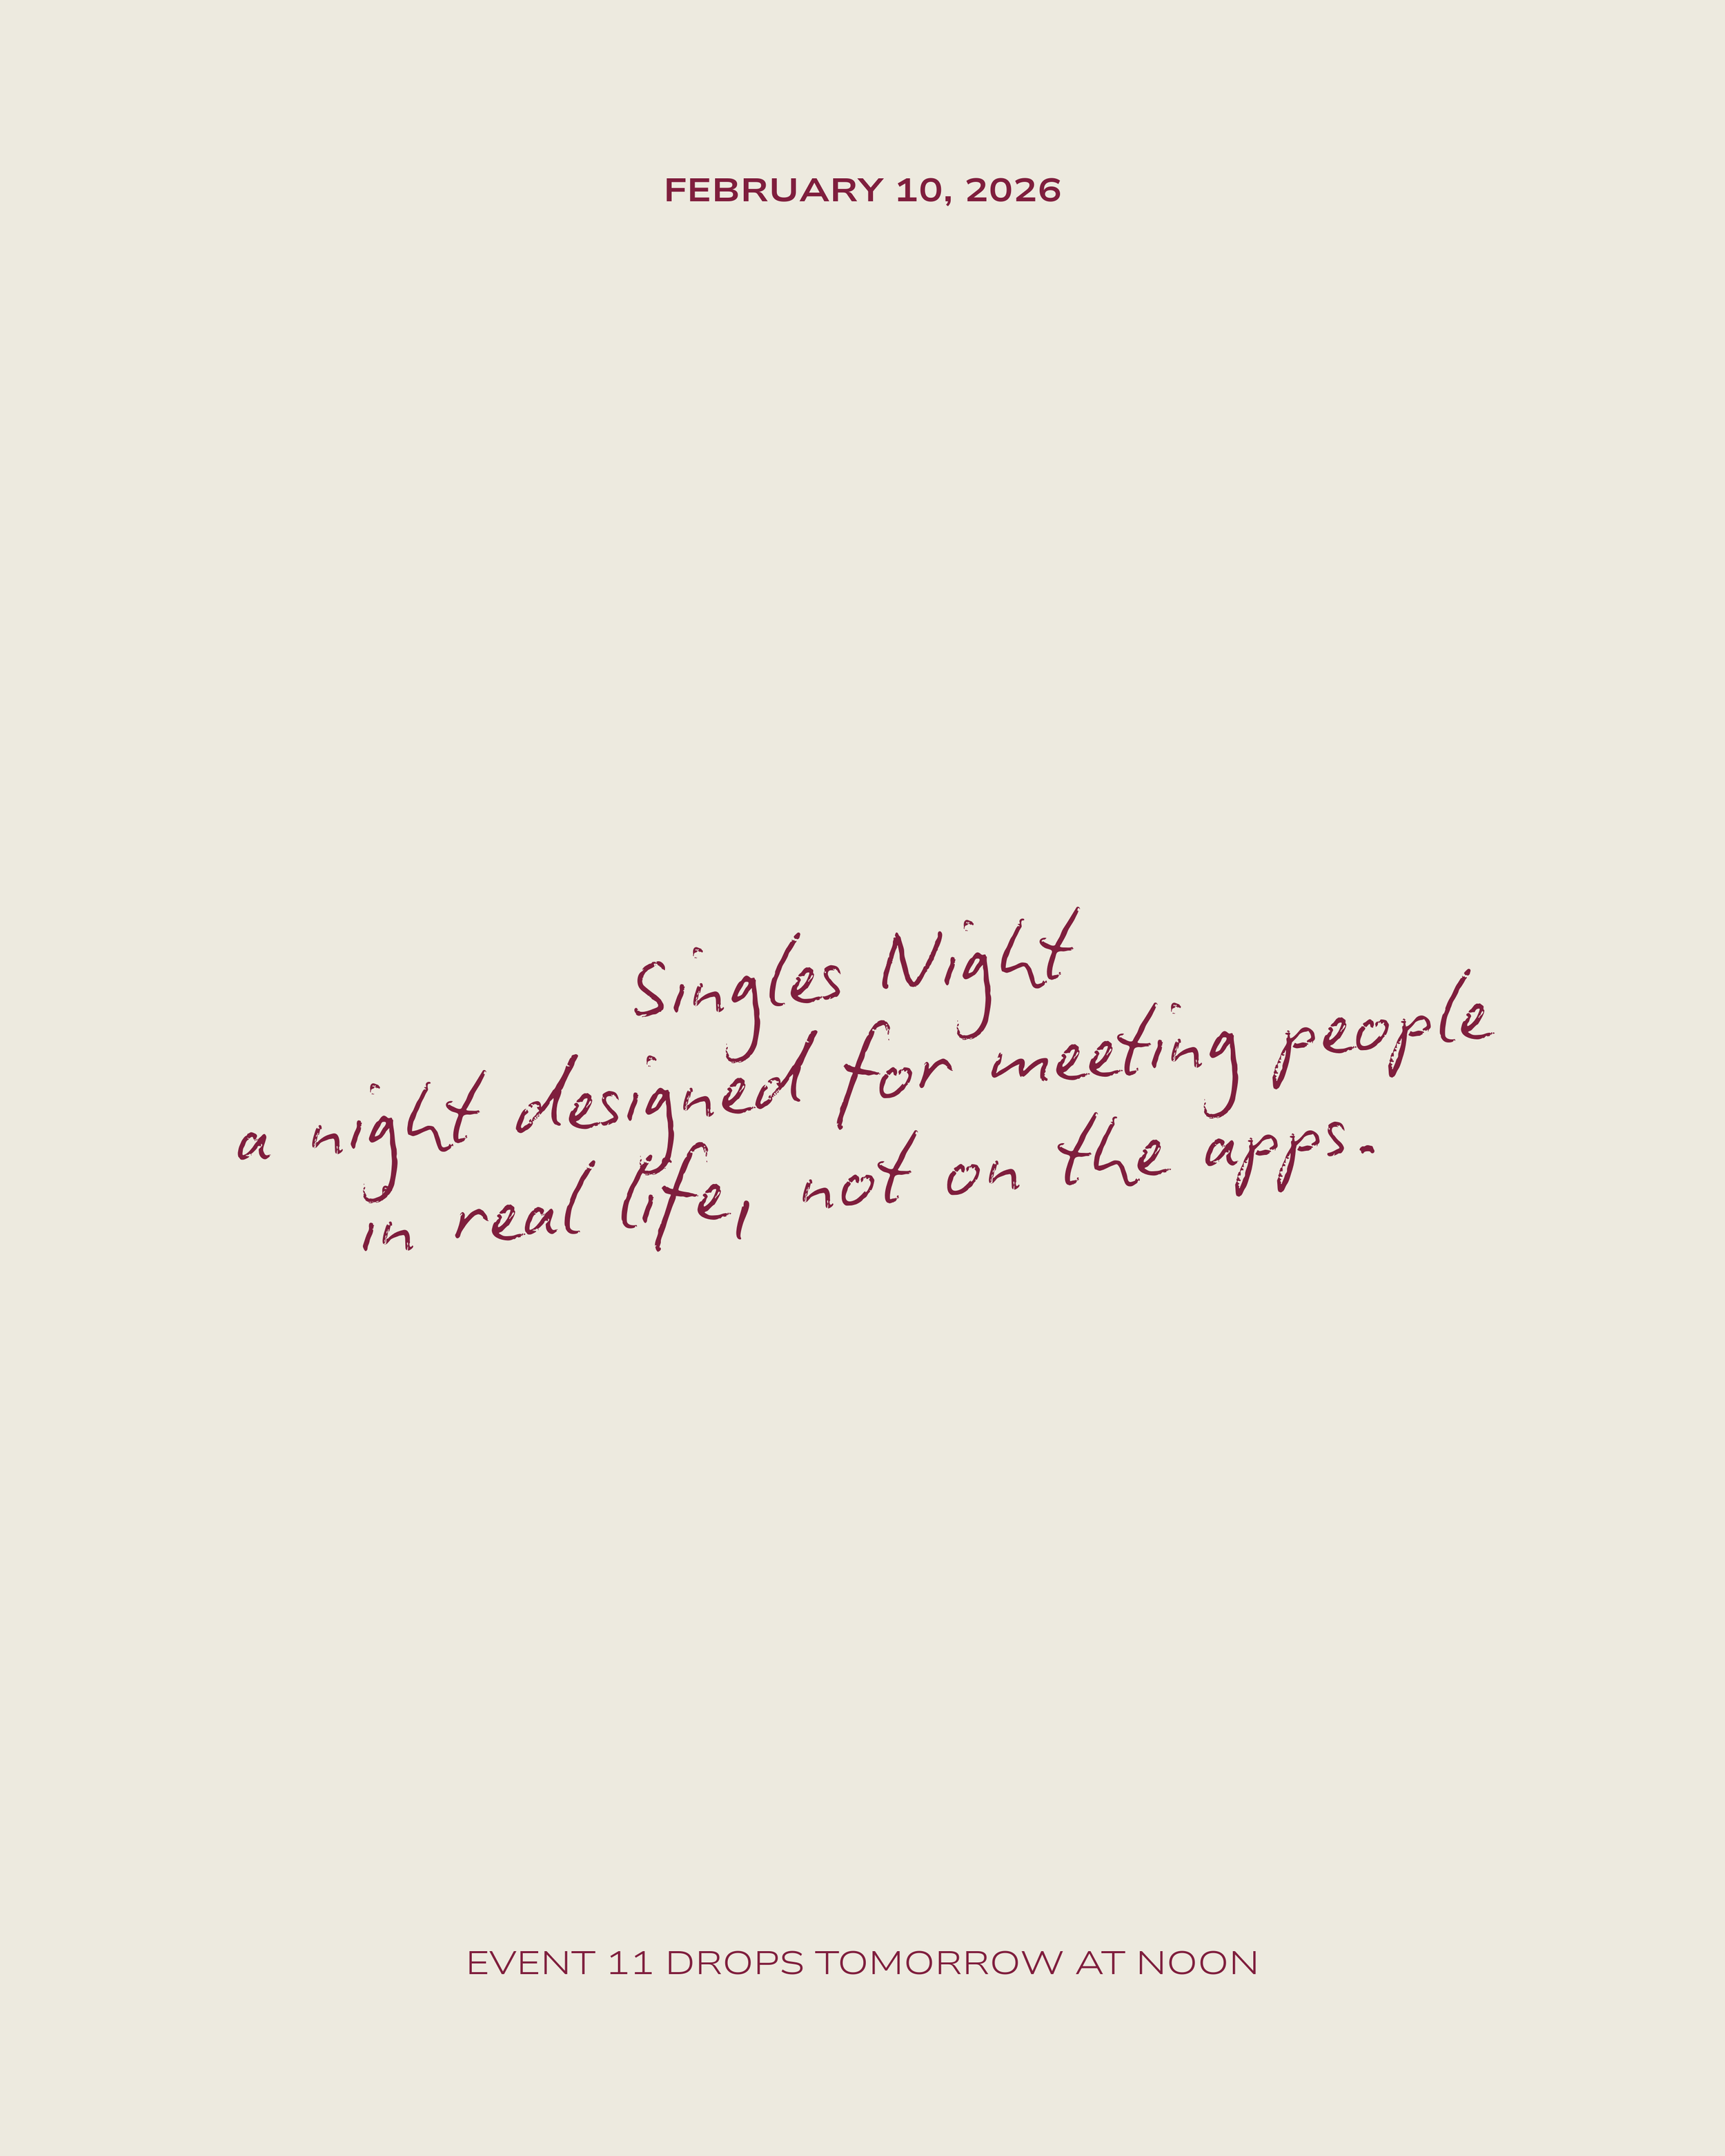 FEBRUARY 10, 2026
Singles Night
a night designed for meeting people
in real life, not on the apps.
EVENT 11 DROPS TOMORROW AT NOON